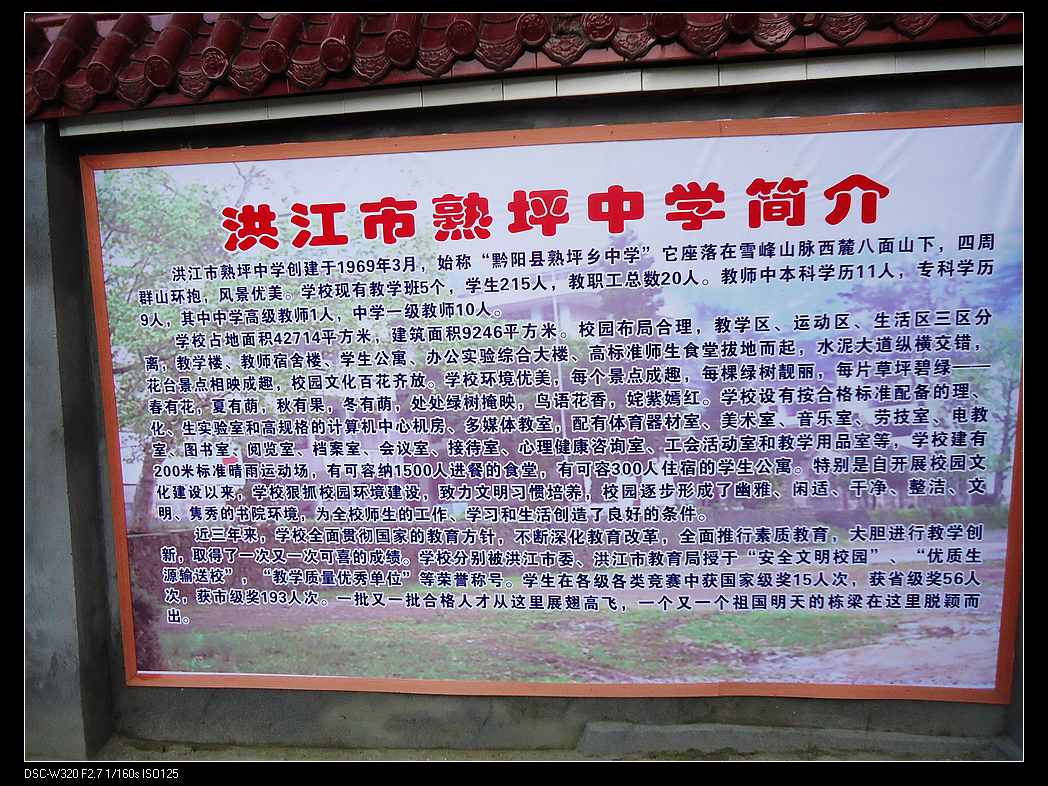 洪江市熟坪中学简介
洪江市熟坪中学创建于1969年3月，始称“黔阳县熟坪乡中学”它座落在雪峰山脉西麓八面山下，四周
群山环抱，风景优美。学校现有教学班5个，学生215人，教职工总数20人。教师中本科学历11人，专科学历
9人，其中中学高级教师1人，中学一级教师10人。
学校占地面积42714平方米，建筑面积9246平方米。校园布局合理，教学区、运动区、生活区三区分
离，教学楼、教师宿舍楼、学生公寓、办公实验综合大楼、高标准师生食堂拔地而起，水泥大道纵横交错，
花台景点相映成趣，校园文化百花齐放。学校环境优美，每个景点成趣，每棵绿树靓丽，每片草坪碧绿——
春有花，夏有荫，秋有果，冬有荫，处处绿树掩映，鸟语花香，姹紫嫣红。学校设有按合格标准配备的理、
化、生实验室和高规格的计算机中心机房、多媒体教室，配有体育器材室、美术室、音乐室、劳技室、电教
室、图书室、阅览室、档案室、会议室、接待室、心理健康咨询室、工会活动室和教学用品室等，学校建有
200米标准晴雨运动场，有可容纳1500人进餐的食堂，有可容300人住宿的学生公寓。特别是自开展校园文
化建设以来，学校狠抓校园环境建设，致力文明习惯培养，校园逐步形成了幽雅、闲适、干净、整洁、文
明、隽秀的书院环境，为全校师生的工作、学习和生活创造了良好的条件。
近三年来，学校全面贯彻国家的教育方针，不断深化教育改革，全面推行素质教育，大胆进行教学创
新，取得了一次又一次可喜的成绩。学校分别被洪江市委、洪江市教育局授于“安全文明校园”、“优质生
源输送校”，“教学质量优秀单位”等荣誉称号。学生在各级各类竞赛中获国家级奖15人次，获省级奖56人
次，获市级奖193人次。一批又一批合格人才从这里展翅高飞，一个又一个祖国明天的栋梁在这里脱颖而
出。
DSC-W320 F2.7 1/160s ISO125